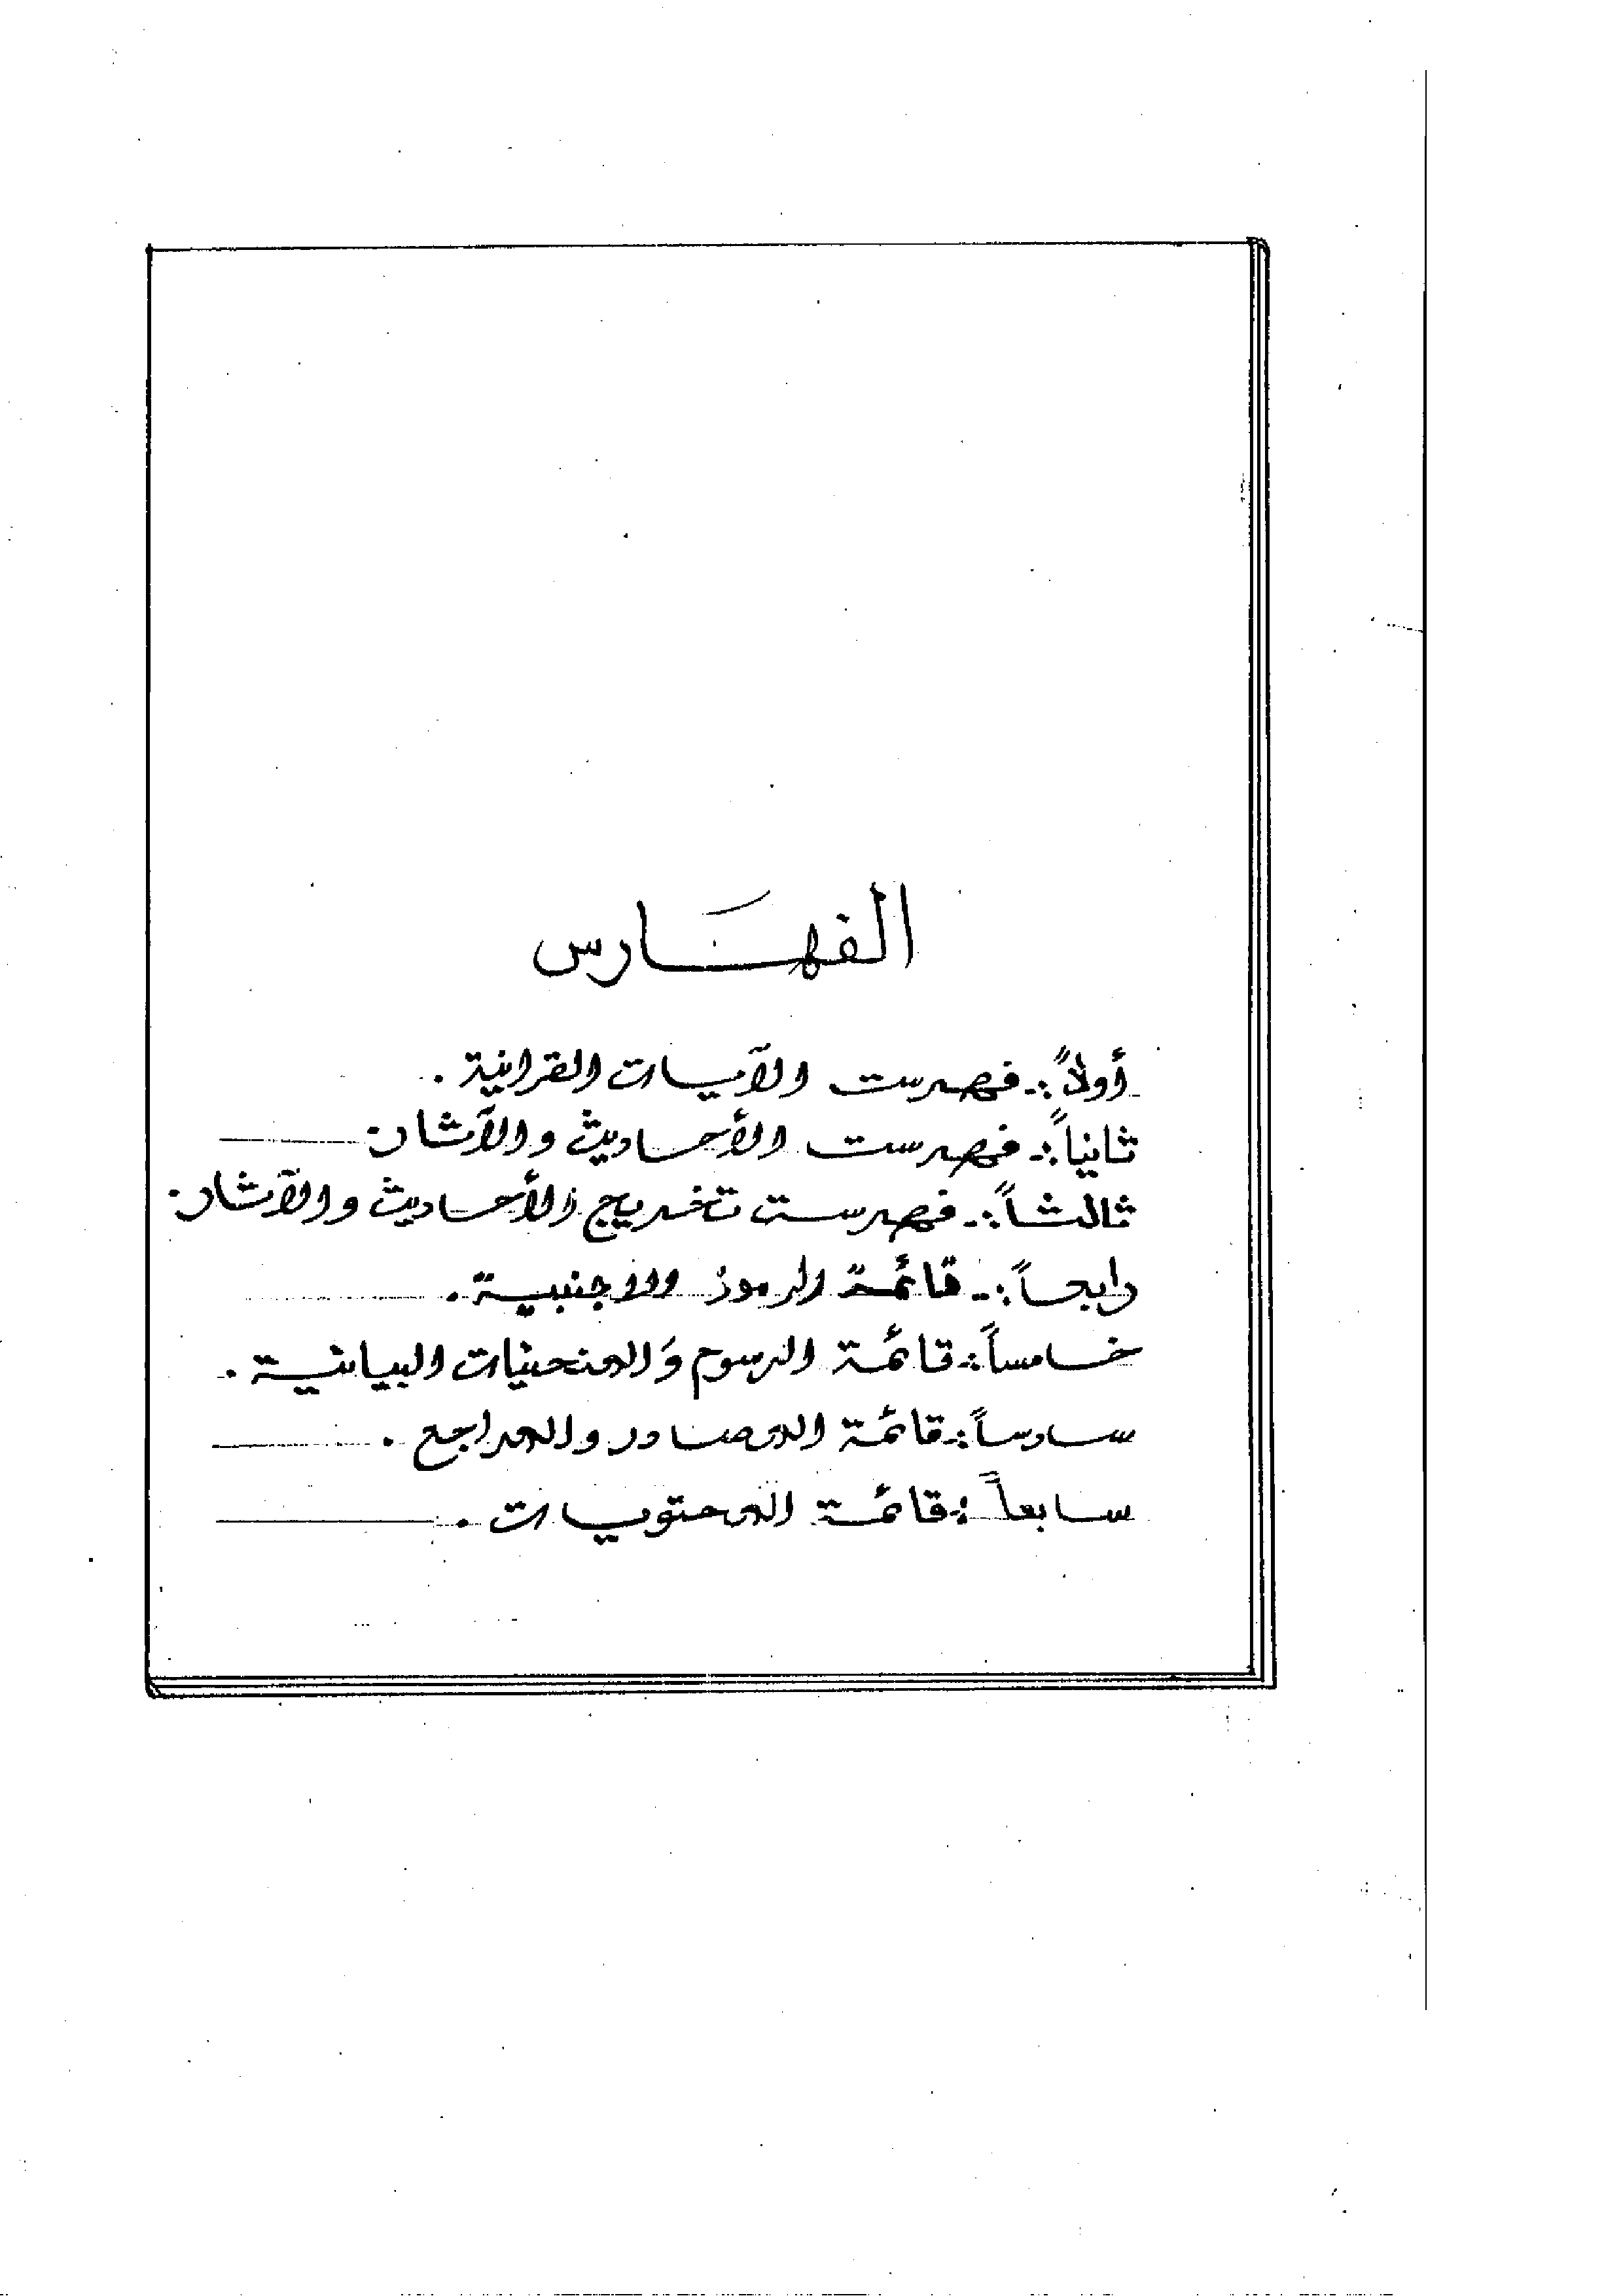 الفهَارس
أولاً:- فهرست الآيات القرانية .
ثانياً:- فهرست الأحاديث والآثار.
ثالثاً:- فهرست تخريج الأحاديث والآثار.
رابعاً:- قائمة الرموز الاجنبية .
خامساً:- قائمة الرسوم وَالمنحنيات البيانية .
سادساً:- قائمة المصادر والمراجع .
سابعاً:- قائمة المحتويات .